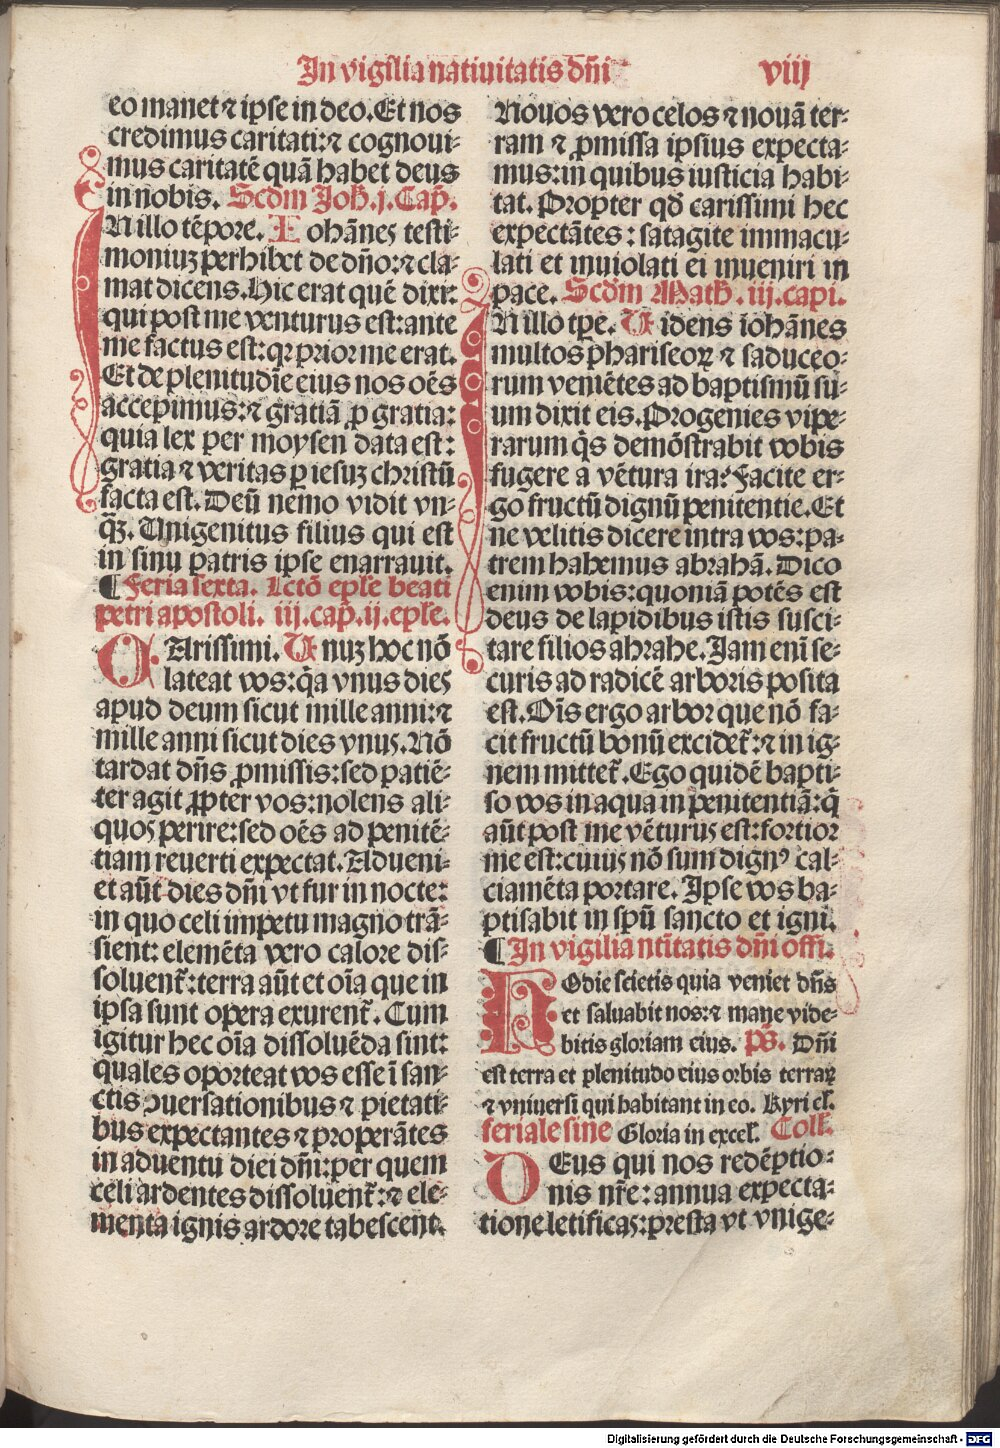 In vigilia natiuitatis dñi viij
eo manet ⁊ ipse in deo. Et nos
credimus caritati: ⁊ cognoui⸗
mus caritatē quā habet deus
in nobis. Scdm Joh. j. Cap.
IN illo tēpore. Iohānes testi⸗
moniuꝫ perhibet de dño: ⁊ cla⸗
mat dicens. Hic erat quē dixi:
qui post me venturus est: ante
me factus est: qꝛ prior me erat.
Et de plenitudīe eius nos oēs
accepimus: ⁊ gratiā ꝓ gratia:
quia lex per moysen data est:
gratia ⁊ veritas ꝑ iesuꝫ christū
facta est. Deū nemo vidit vn⸗
q̄ꝫ. Unigenitus filius qui est
in sinu patris ipse enarrauit.
¶ Feria sexta. Lctō eple beati
petri apostoli. iij. cap. ij. eple.
CArissimi. Unuꝫ hoc nō
lateat vos: q̄a vnus dies
apud deum sicut mille anni: ⁊
mille anni sicut dies vnus. Nō
tardat dñs ꝓmissis: sed patiē⸗
ter agit ꝓpter vos: nolens ali⸗
quos perire: sed oēs ad penitē⸗
tiam reuerti expectat. Adueni⸗
et aūt dies dñi vt fur in nocte:
in quo celi impetu magno trā⸗
sient: elemēta vero calore dis⸗
soluent̄: terra aūt et oīa que in
ipsa sunt opera exurent̄. Cum
igitur hec oīa dissoluēda sint:
quales oporteat vos esse ī san⸗
ctis ↄuersationibus ⁊ pietati⸗
bus expectantes ⁊ properātes
in aduentu diei dñi: per quem
celi ardentes dissoluent̄: ⁊ ele⸗
menta ignis ardore tabescent.
Nouos vero celos ⁊ nouā ter⸗
ram ⁊ ꝓmissa ipsius expecta⸗
mus: in quibus iusticia habi⸗
tat. Propter qd̄ carissimi hec
expectātes: satagite immacu⸗
lati et inuiolati ei inueniri in
pace. Scdm Math. iij. capi.
IN illo tpe. Uidens iohānes
multos phariseoꝝ ⁊ saduceo⸗
rum veniētes ad baptismū su⸗
um dixit eis. Progenies vipe⸗
rarum q̄s demōstrabit vobis
fugere a vētura ira? Facite er⸗
go fructū dignū penitentie. Et
ne velitis dicere intra vos: pa⸗
trem habemus abrahā. Dico
enim vobis: quoniā potēs est
deus de lapidibus istis susci⸗
tare filios abrahe. Iam enī se⸗
curis ad radicē arboris posita
est. Oīs ergo arbor que nō fa⸗
cit fructū bonū excidet̄: ⁊ in ig⸗
nem mittet̄. Ego quidē bapti⸗
so vos in aqua in penitentiā: q̄
aūt post me vēturus est: fortior
me est: cuius nō sum dignꝰ cal⸗
ciamēta portare. Ipse vos ba⸗
ptisabit in spū sancto et igni.
¶ In vigilia ntītatis dñi offi.
HOdie scietis quia veniet dñs
et saluabit nos: ⁊ mane vide⸗
bitis gloriam eius. Ps. Dñi
est terra et plenitudo eius orbis terraꝝ
⁊ vniuersi qui habitant in eo. Kyri el.
feriale sine Gloria in excel. Coll.
DEus qui nos redēptio⸗
nis nr̄e: annua expecta⸗
tione letificas: presta vt vnige⸗
Digitalisierung gefördert durch die Deutsche Forschungsgemeinschaft - DFG